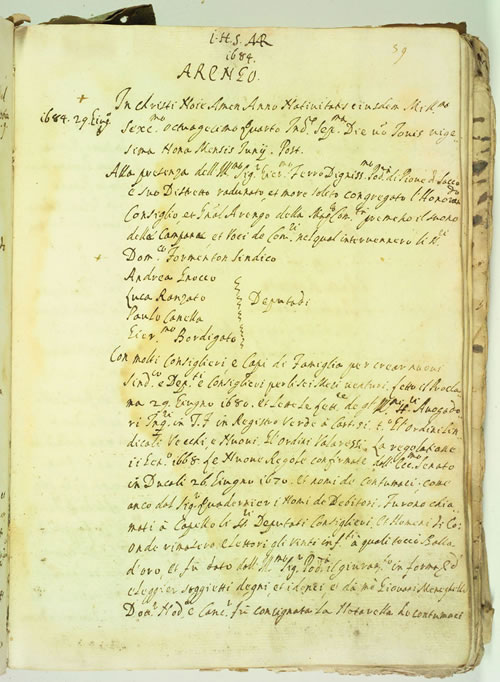 I. H. S. AR
39
1684.
ARENGO.
1684. 29 Giug.o
In Christi Noie Amen Anno Nativitatis eiusdem Mill.mo
Sexc.mo octuagecimo Quarto Ind.e Sep.ma Die v.o Iovis vige-
sima Nona Mensis Iunij. Post.
Alla presenza dell'Ill.mo Sig.r Gier.mo Ferro Digniss.mo Pod.à di Piove di Sacco
e suo Distretto radunato, et more solito congregato l'Honorando
Consiglio, et Gn'al Arengo della Mag.ca Com.tà premesso il suono
della Campana et Voci de Com.ri nel qual intervennero li
Dom.co Formenton Sindico
Andrea
Luca Ranzato
Paulo Canella
Gier.mo Bordigato
Deputadi
Con molti Consiglieri e Capi di Famiglia per crear nuovi
Sind.co e Dep.ti e Consiglieri per li sei Mesi venturi, fatto il Procla-
ma 29 Giugno 1680. et Lette le di Avogado-
ri in Registro Verde à Cart. et l'ordini Sin-
dicali Vecchi e Nuovi. Et ordini Valaressi. La regolatione
1668. le Nuove Regole confirmate dall'Ecc.mo Senato
in Ducali 26 Giugno 1670. et nomi de contumaci, come
anco dal Sig.r Quadernier i Nomi de Debitori. Furono chia-
mati à Capello li Deputati Consiglieri, et Homeni de Co:
onde rimasero elettori gli Venti à quali toccò Balla
d'oro, et fù dato dall'Ill.mo Sig.r Pod.à il giuram.to in forma
elegger soggietti degni et idonei e da me Giovani
Nod.o e Canc.r fù consignata La Notarella de contumaci